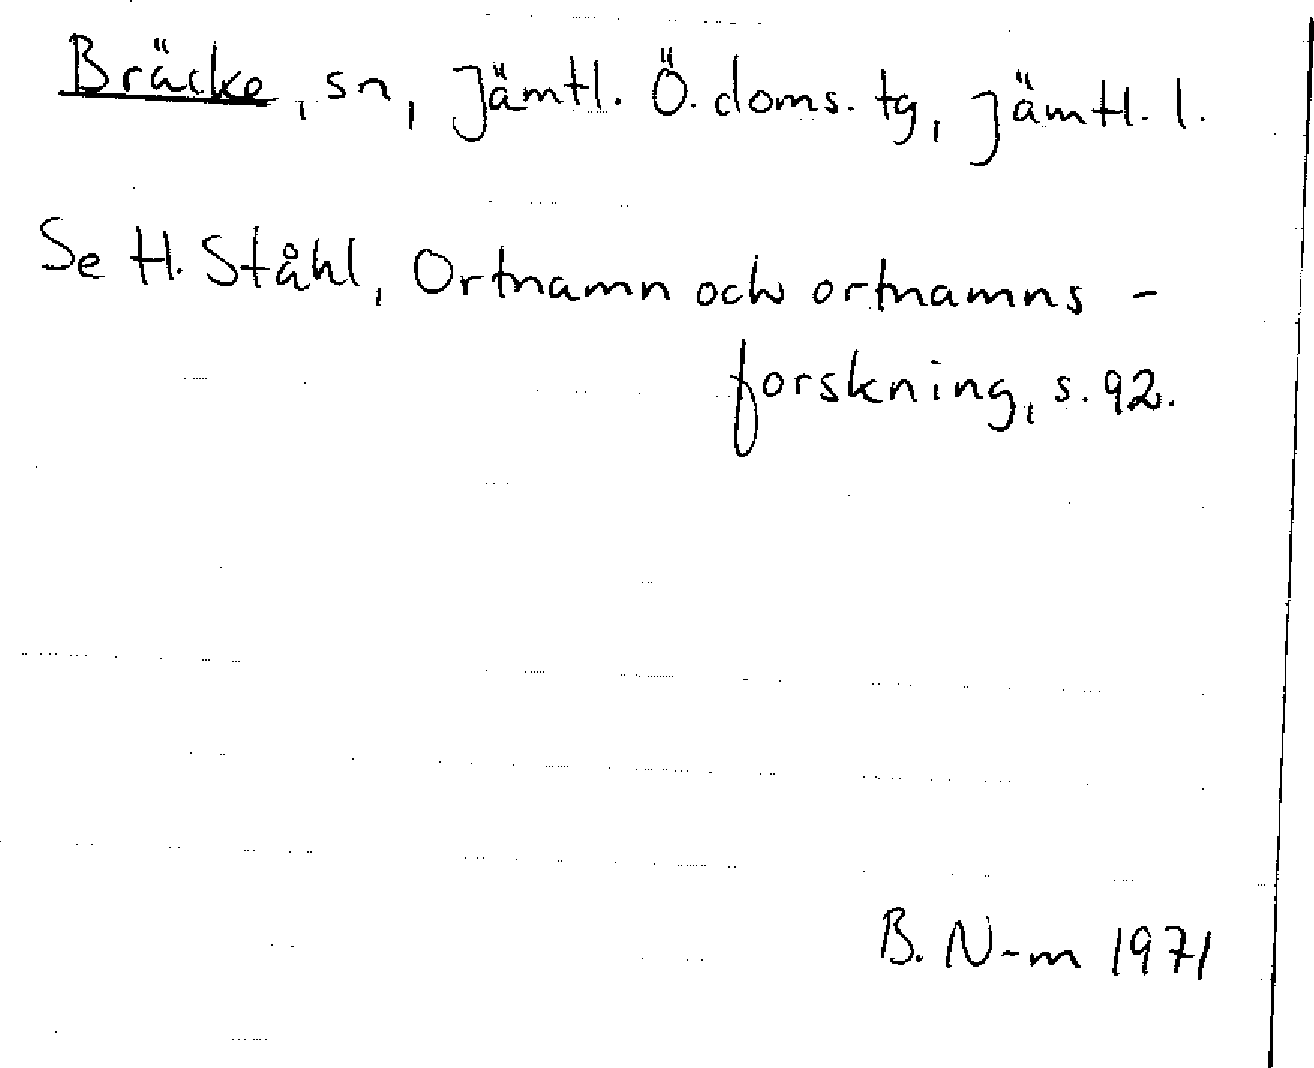 Bräcke, sn, Jämtl. Ö. doms. tg, Jämtl. l.
Se H. Ståhl, Ortnamn och ortnamns-
forskning, s. 92.
B. N-m 1971